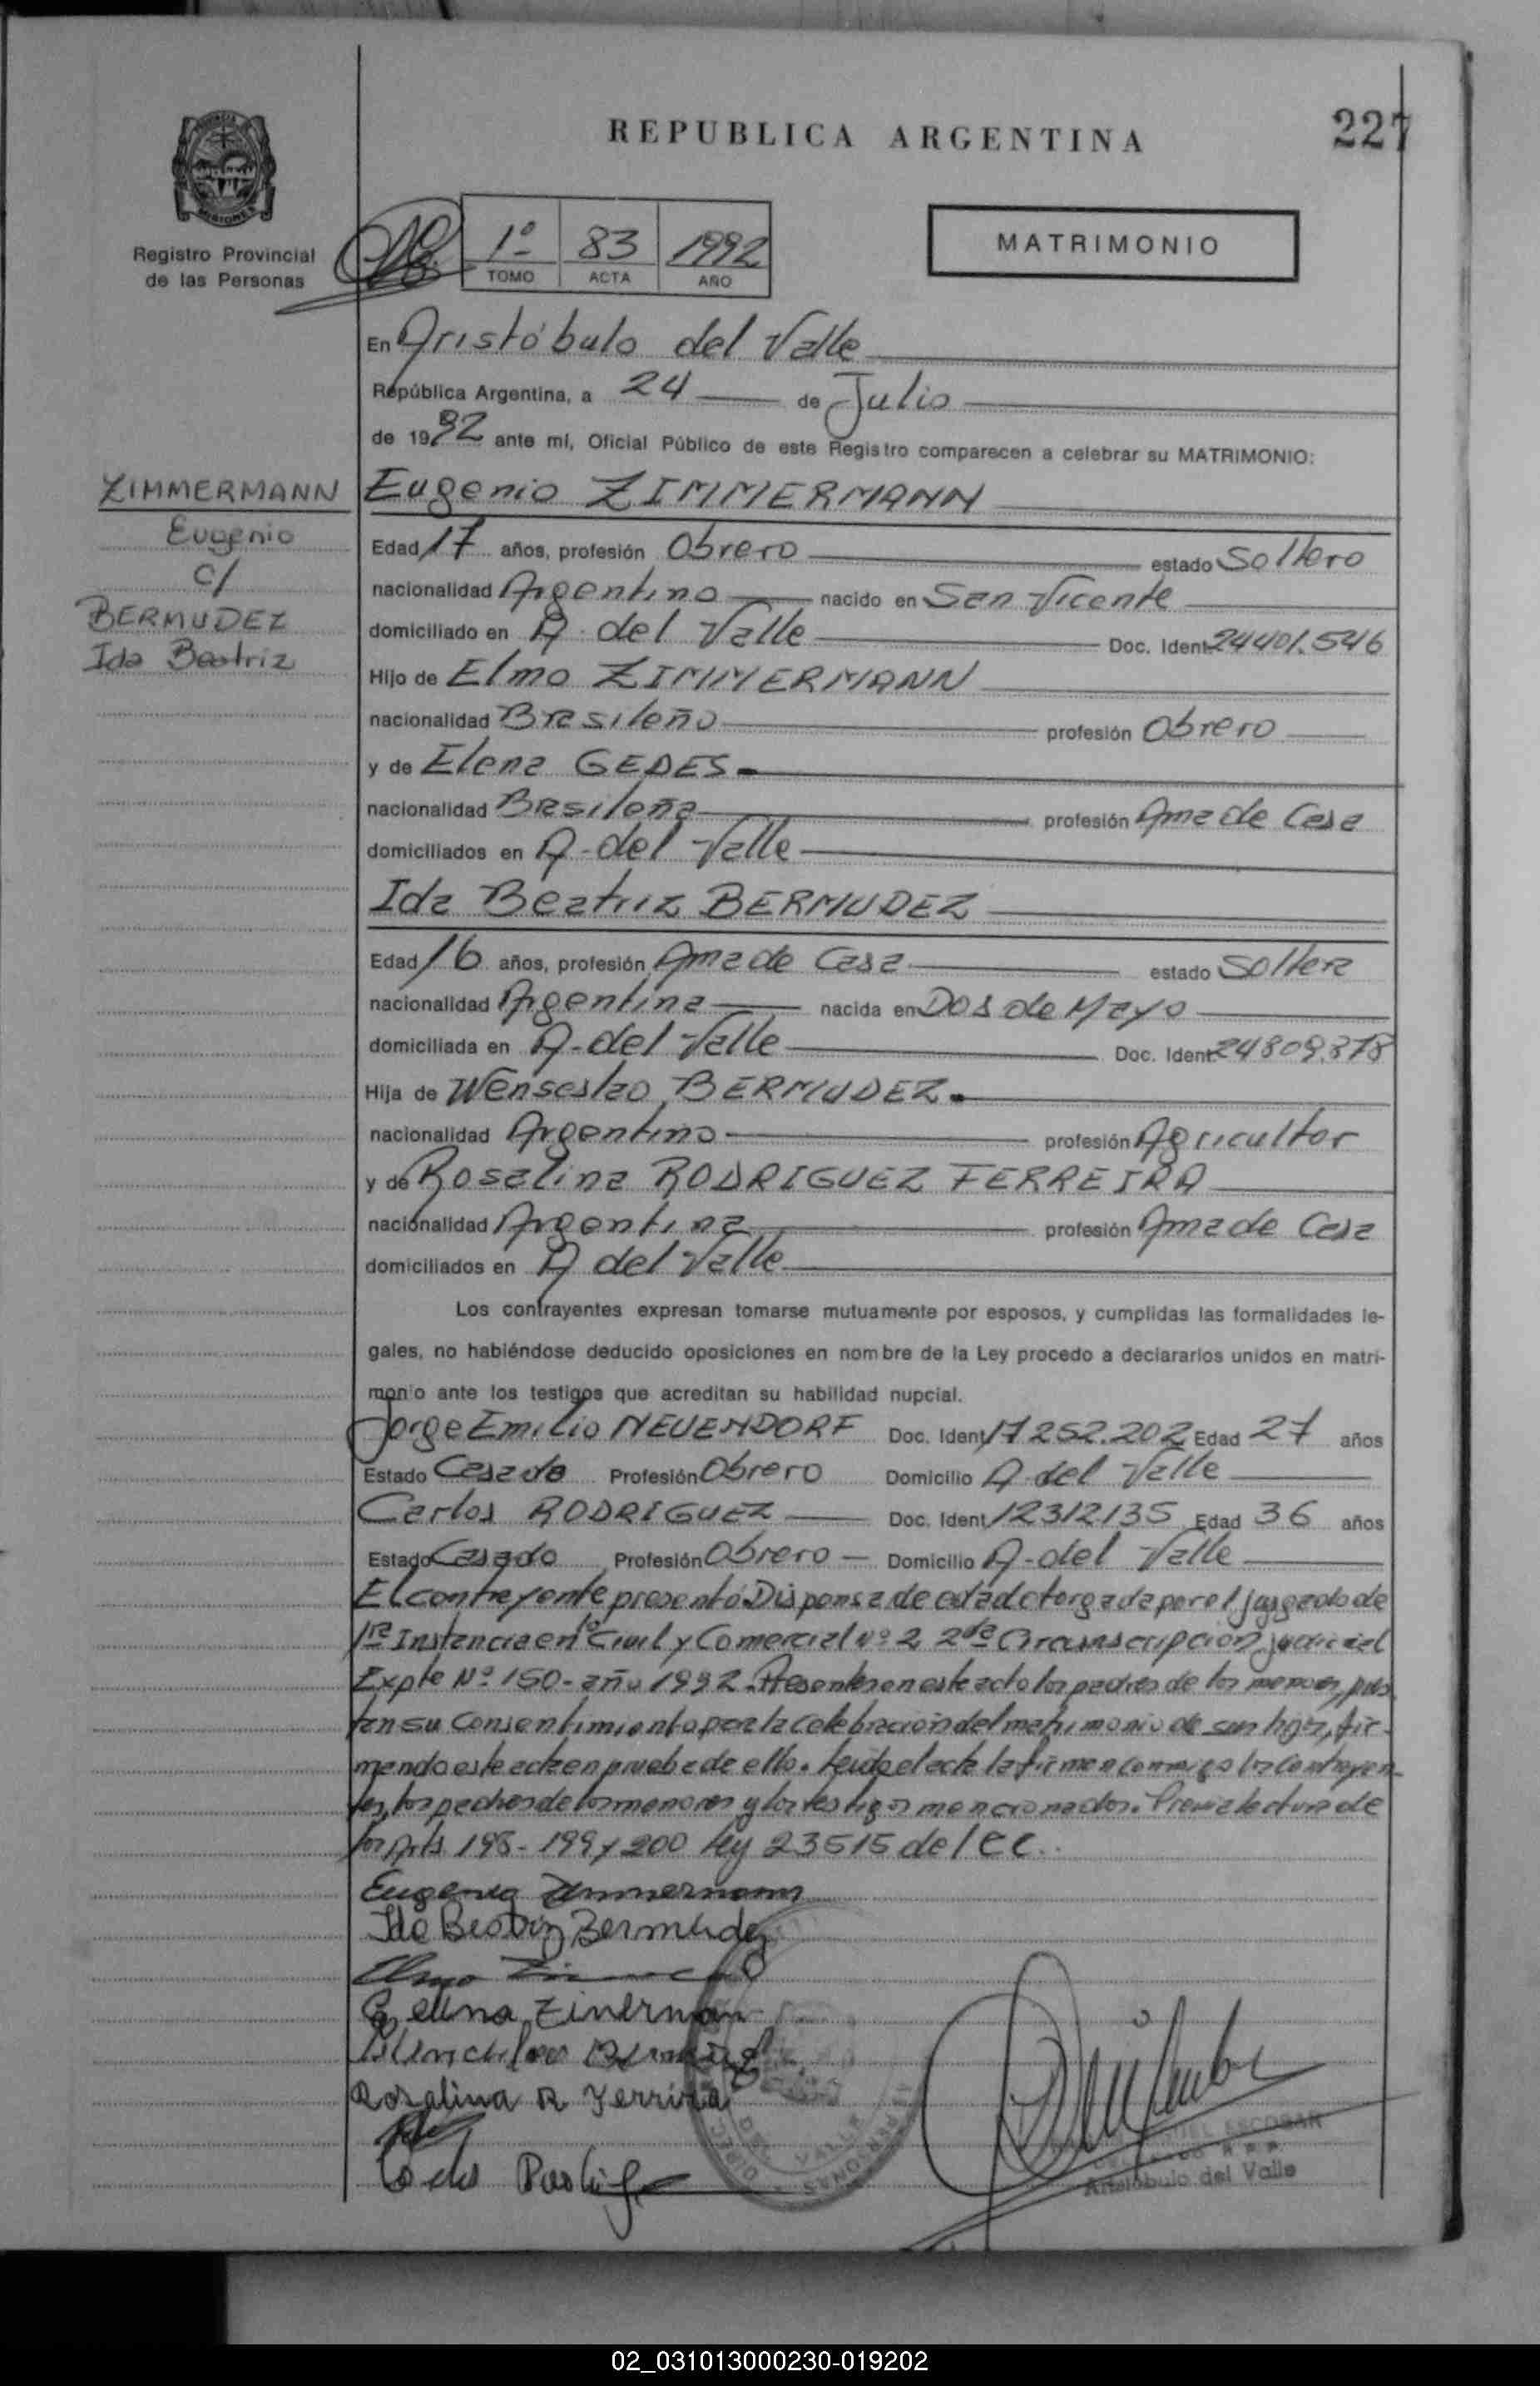 REPUBLICA ARGENTINA
227
Registro Provincial
de las Personas
1º 83 1992
TOMO ACTA AÑO
MATRIMONIO
En Aristóbulo del Valle
República Argentina, a 24 de Julio
de 1992 ante mí, Oficial Público de este Registro comparecen a celebrar su MATRIMONIO:
ZIMMERMANN
Eugenio
C/
BERMUDEZ
Ida Beatriz
Eugenio ZIMMERMANN
Edad 17 años, profesión Obrero estado Soltero
nacionalidad Argentino nacido en San Vicente
domiciliado en A. del Valle Doc. Ident 24401.546
Hijo de Elmo ZIMMERMANN
nacionalidad Brasileño profesión Obrero
y de Elena GEDES
nacionalidad Brasileña profesión Ama de Casa
domiciliados en A. del Valle
Ida Beatriz BERMUDEZ
Edad 16 años, profesión Ama de Casa estado Soltera
nacionalidad Argentina nacida en Dos de Mayo
domiciliada en A. del Valle Doc. Ident 24809.378
Hija de Wenseslao BERMUDEZ
nacionalidad Argentino profesión Agricultor
y de Rosalina RODRIGUEZ FERREIRA
nacionalidad Argentina profesión Ama de Casa
domiciliados en A del Valle
Los contrayentes expresan tomarse mutuamente por esposos, y cumplidas las formalidades le-
gales, no habiéndose deducido oposiciones en nombre de la Ley procedo a declararlos unidos en matri-
monio ante los testigos que acreditan su habilidad nupcial.
Jorge Emilio NEUENDORF Doc. Ident 17252.202 Edad 27 años
Estado Casado Profesión Obrero Domicilio A. del Valle
Carlos RODRIGUEZ Doc. Ident 12312135 Edad 36 años
Estado Casado Profesión Obrero Domicilio A. del Valle
El contrayente presentó Dispensa de edad otorgada por el juzgado de
1ra Instancia en lo Civil y Comercial Nº 2 2da Circunscripcion judicial
Expte Nº 150- año 1992. Presentes en este acto los padres de los menores, pres
tan su Consentimiento para la celebración del matrimonio de sus hijos, fir-
mando este acta en prueba de ello. Leída el acta la firman conmigo los Contrayen-
tes, los padres de los menores y los testigos mencionados. Previa lectura de
los Arts 198-199 y 200 Ley 23515 del CC.
Eugenio Zimmermann
Ida Beatriz Bermudez
Elmo
Zinerman
Rosalina R Ferrira
ESCOBAR
Aristóbulo del Valle
02_031013000230-019202